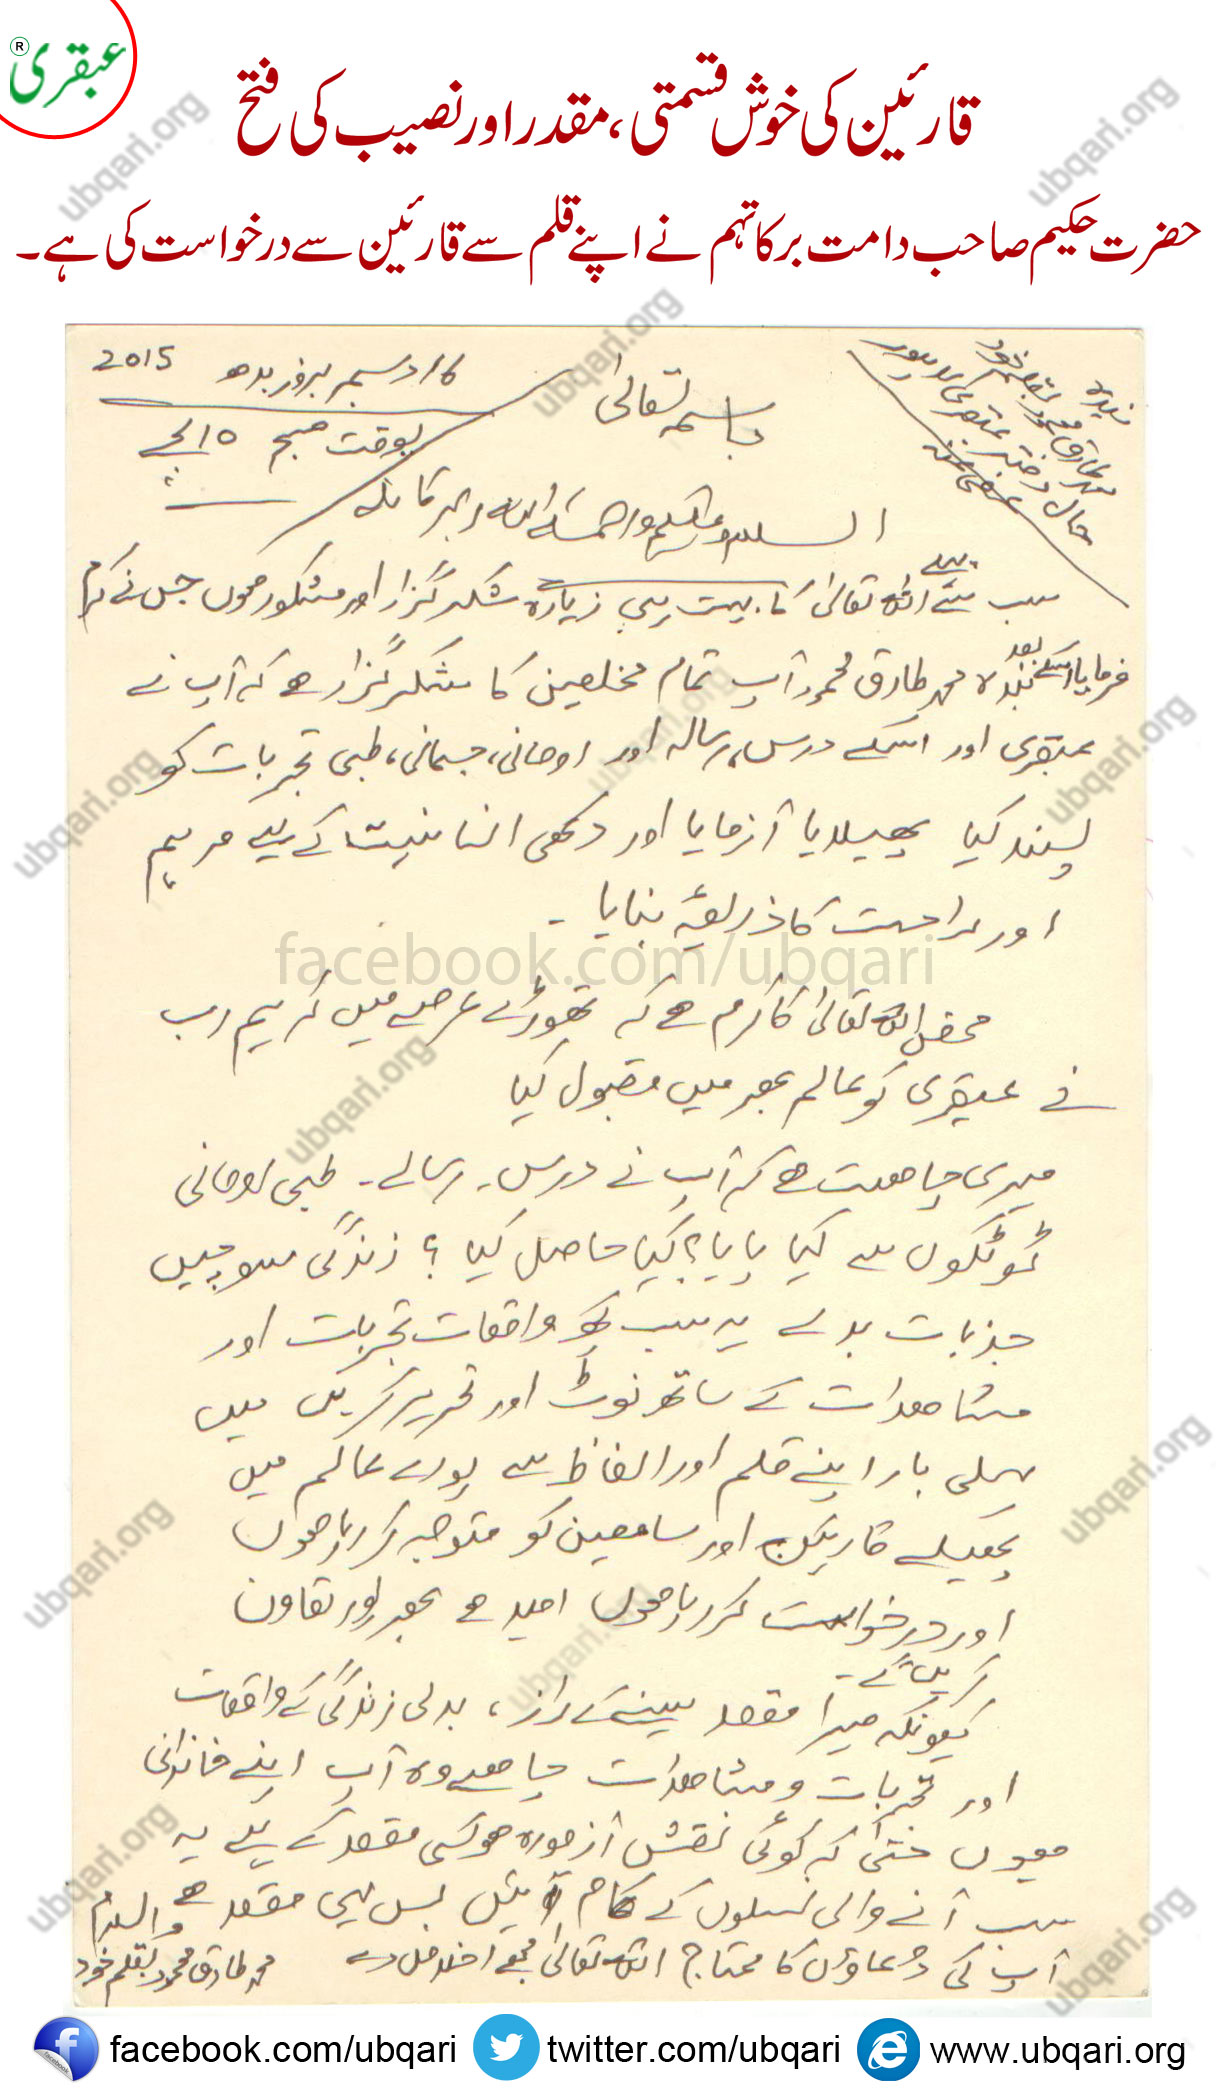 عبقری ®
قارئین کی خوش قسمتی، مقدر اور نصیب کی فتح
حضرت حکیم صاحب دامت برکاتہم نے اپنے قلم سے قارئین سے درخواست کی ہے۔
بندہ
محمد طارق محمود بقلم خود
حال دفتر عبقری لاہور
باسمہ تعالیٰ
16 دسمبر بروز بدھ 2015
بوقت صبح 10 بجے
السلام علیکم ورحمۃ اللہ وبرکاتہ
سب سے پہلے اللہ تعالیٰ کا بہت ہی زیادہ شکر گزار اور مشکور ہوں جس نے کرم
فرمایا اسکے بعد بندہ محمد طارق محمود آپ تمام مخلصین کا شکر گزار ہے کہ آپ نے
عبقری اور اسکے درس، رسالہ اور روحانی، جسمانی، طبی تجربات کو
پسند کیا پھیلایا آزمایا اور دکھی انسانیت کے لیے مرہم
اور راحت کا ذریعہ بنایا ۔
محض اللہ تعالیٰ کا کرم ہے کہ تھوڑے عرصے میں کریم رب
نے عبقری کو عالم بھر میں مقبول کیا
میری چاہت ہے کہ آپ نے درس۔ رسالے۔ طبی روحانی
ٹوٹکوں سے کیا پایا؟ کیا حاصل کیا؟ زندگی سوچیں
جذبات بدلے یہ سب کچھ واقعات تجربات اور
مشاہدات کے ساتھ نوٹ اور تحریر کریں میں
پہلی بار اپنے قلم اور الفاظ سے پورے عالم میں
پھیلے قارئین اور سامعین کو متوجہ کر رہا ہوں
اور درخواست کر رہا ہوں امید ہے بھرپور تعاون
کریں گے۔
کیونکہ میرا مقصد سینے کے راز، بدلی زندگی کے واقعات
اور تجربات و مشاہدات چاہے وہ آپ اپنے خاندانی
ہوں حتیٰ کہ کوئی نقش آزمودہ ہو کسی مقصد کے لیے یہ
سب آنے والی نسلوں کے کام آئیں بس یہی مقصد ہے والسلام
آپ کی دعاؤں کا محتاج اللہ تعالیٰ مجھے اخلاص دے محمد طارق محمود بقلم خود
facebook.com/ubqari
facebook.com/ubqari twitter.com/ubqari www.ubqari.org
ubqari.org